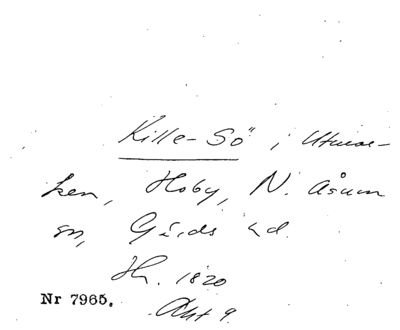 Kille-Sö i Utmar-
ken, Hoby, N. Åsum
sn, Gärds hd.
Hr. 1820
Nr 7965.
Akt 9.